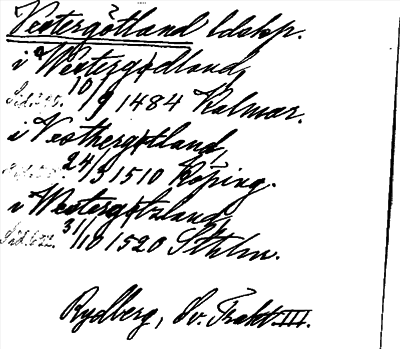 Vestergötland ldskp.
i Westergødland,
10/9 1484 Kalmar.
i Vesthergøtland,
24/3 1510 Köping.
i Westergøtzland
31/10 1520 Sthlm.
Rydberg, Sv. Trakt. III.